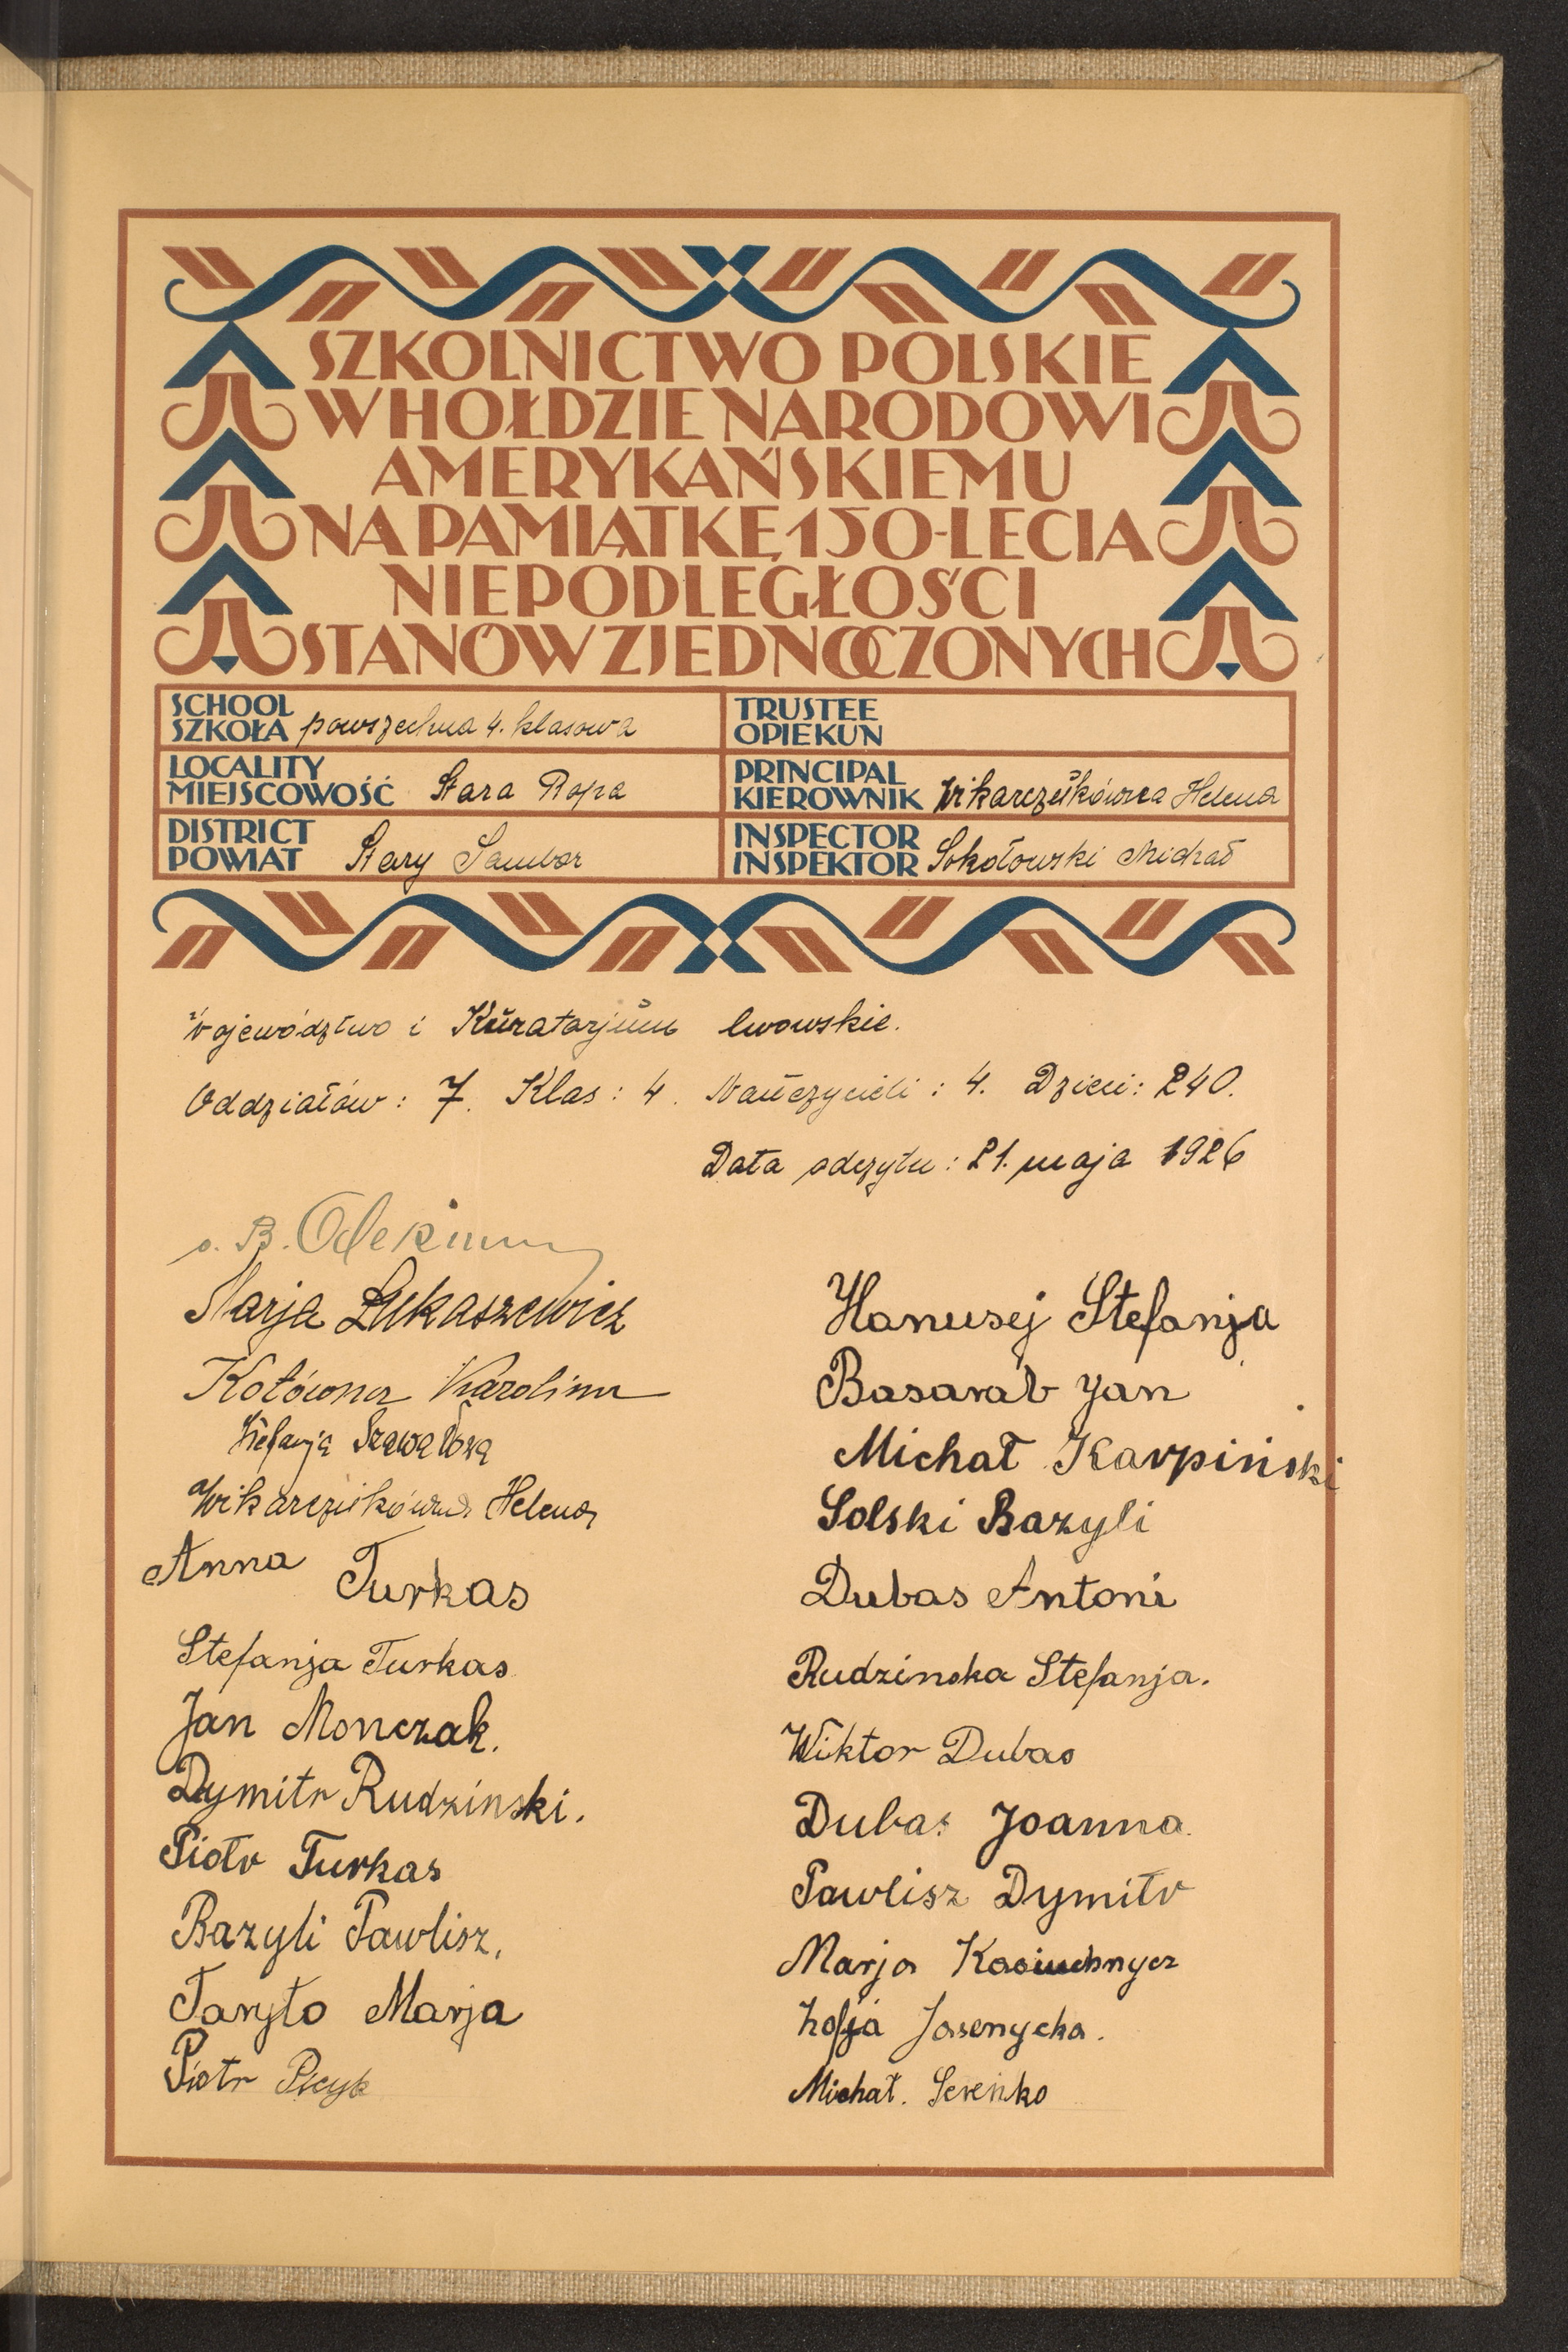 SZKOLNICTWO POLSKIE
W HOŁDZIE NARODOWI
AMERYKAŃSKIEMU
NA PAMIĄTKĘ 150-LECIA
NIEPODLEGŁOŚCI
STANÓW ZJEDNOCZONYCH
SCHOOL
SZKOŁA powszechna 4. klasowa
TRUSTEE
OPIEKUN
LOCALITY
MIEJSCOWOŚĆ Stara Ropa
PRINCIPAL
KIEROWNIK Wikarczukówna Helena
DISTRICT
POWIAT Stary Sambor
INSPECTOR
INSPEKTOR Sokołowski Michał
Województwo i Kuratorjum lwowskie.
Oddziałów: 7. Klas: 4. Nauczycieli: 4. Dzieci: 240.
Data odczytu: 21. maja 1926
o. B.
Marja Łukaszewicz
Kotówna Karolina
Stefanja
Wikarczukówna Helena
Anna Turkas
Stefanja Turkas
Jan Monczak.
Dymitr Rudzinski.
Piotr Turkas
Bazyli Pawlisz.
Taryło Marja
Piotr
Hanusej Stefanja
Basarab Jan
Michał Karpiński
Solski Bazyli
Dubas Antoni
Rudzinska Stefanja.
Wiktor Dubas
Dubas Joanna.
Pawlisz Dymitr
Marja
Zofja Jasenycka.
Michał. Serenko